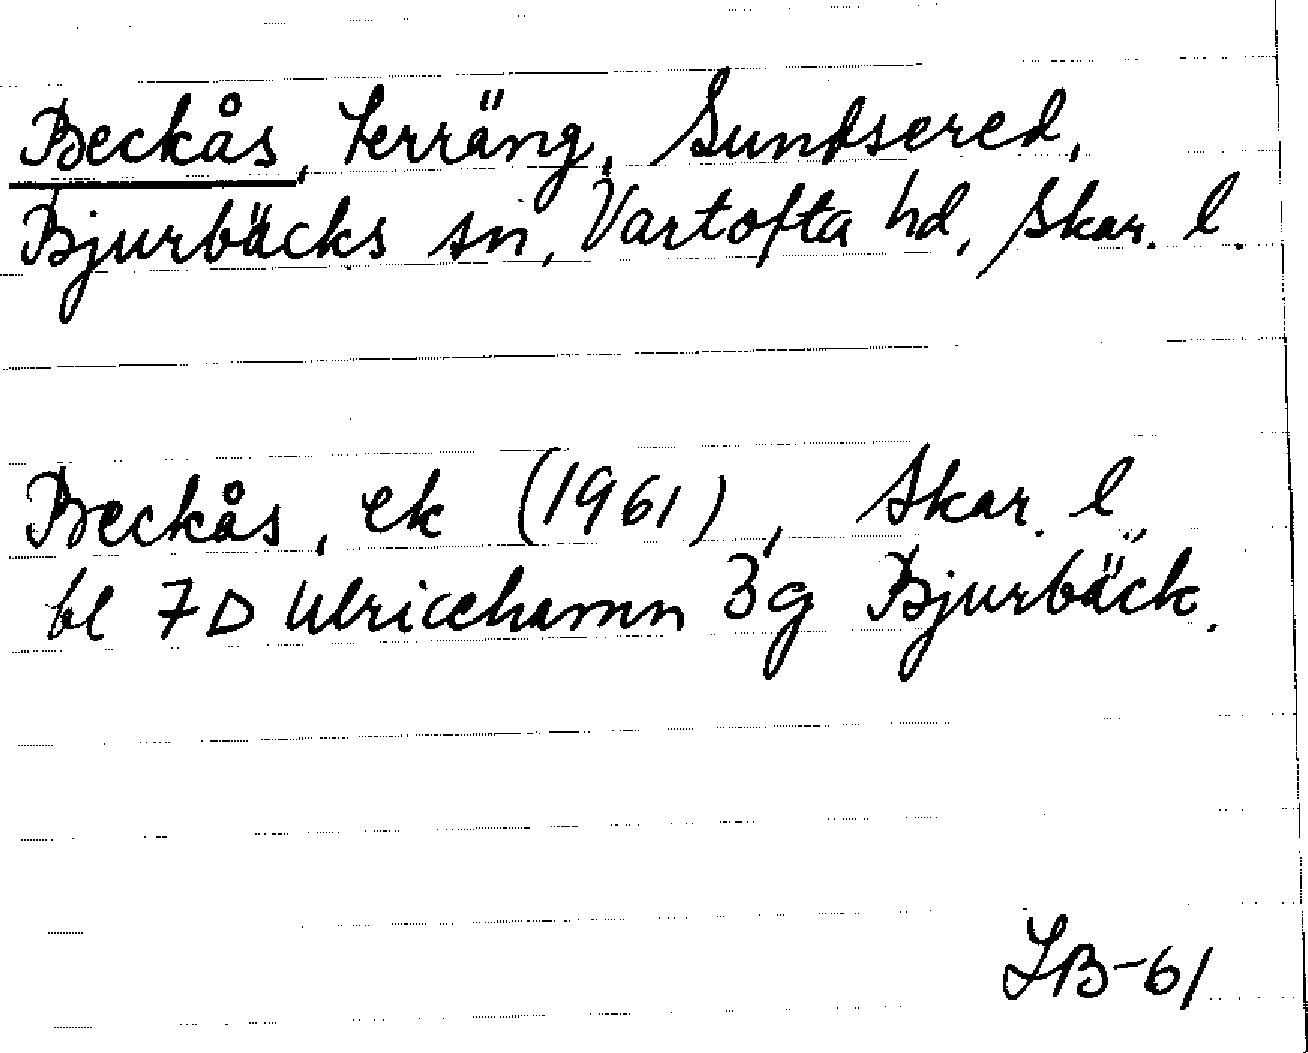 Beckås, terräng, Sundsered,
Bjurbäcks sn, Vartofta hd, Skar. l.
Beckås, ek (1961), Skar. l.,
bl 7D Ulricehamn 3g Bjurbäck.
LB-61